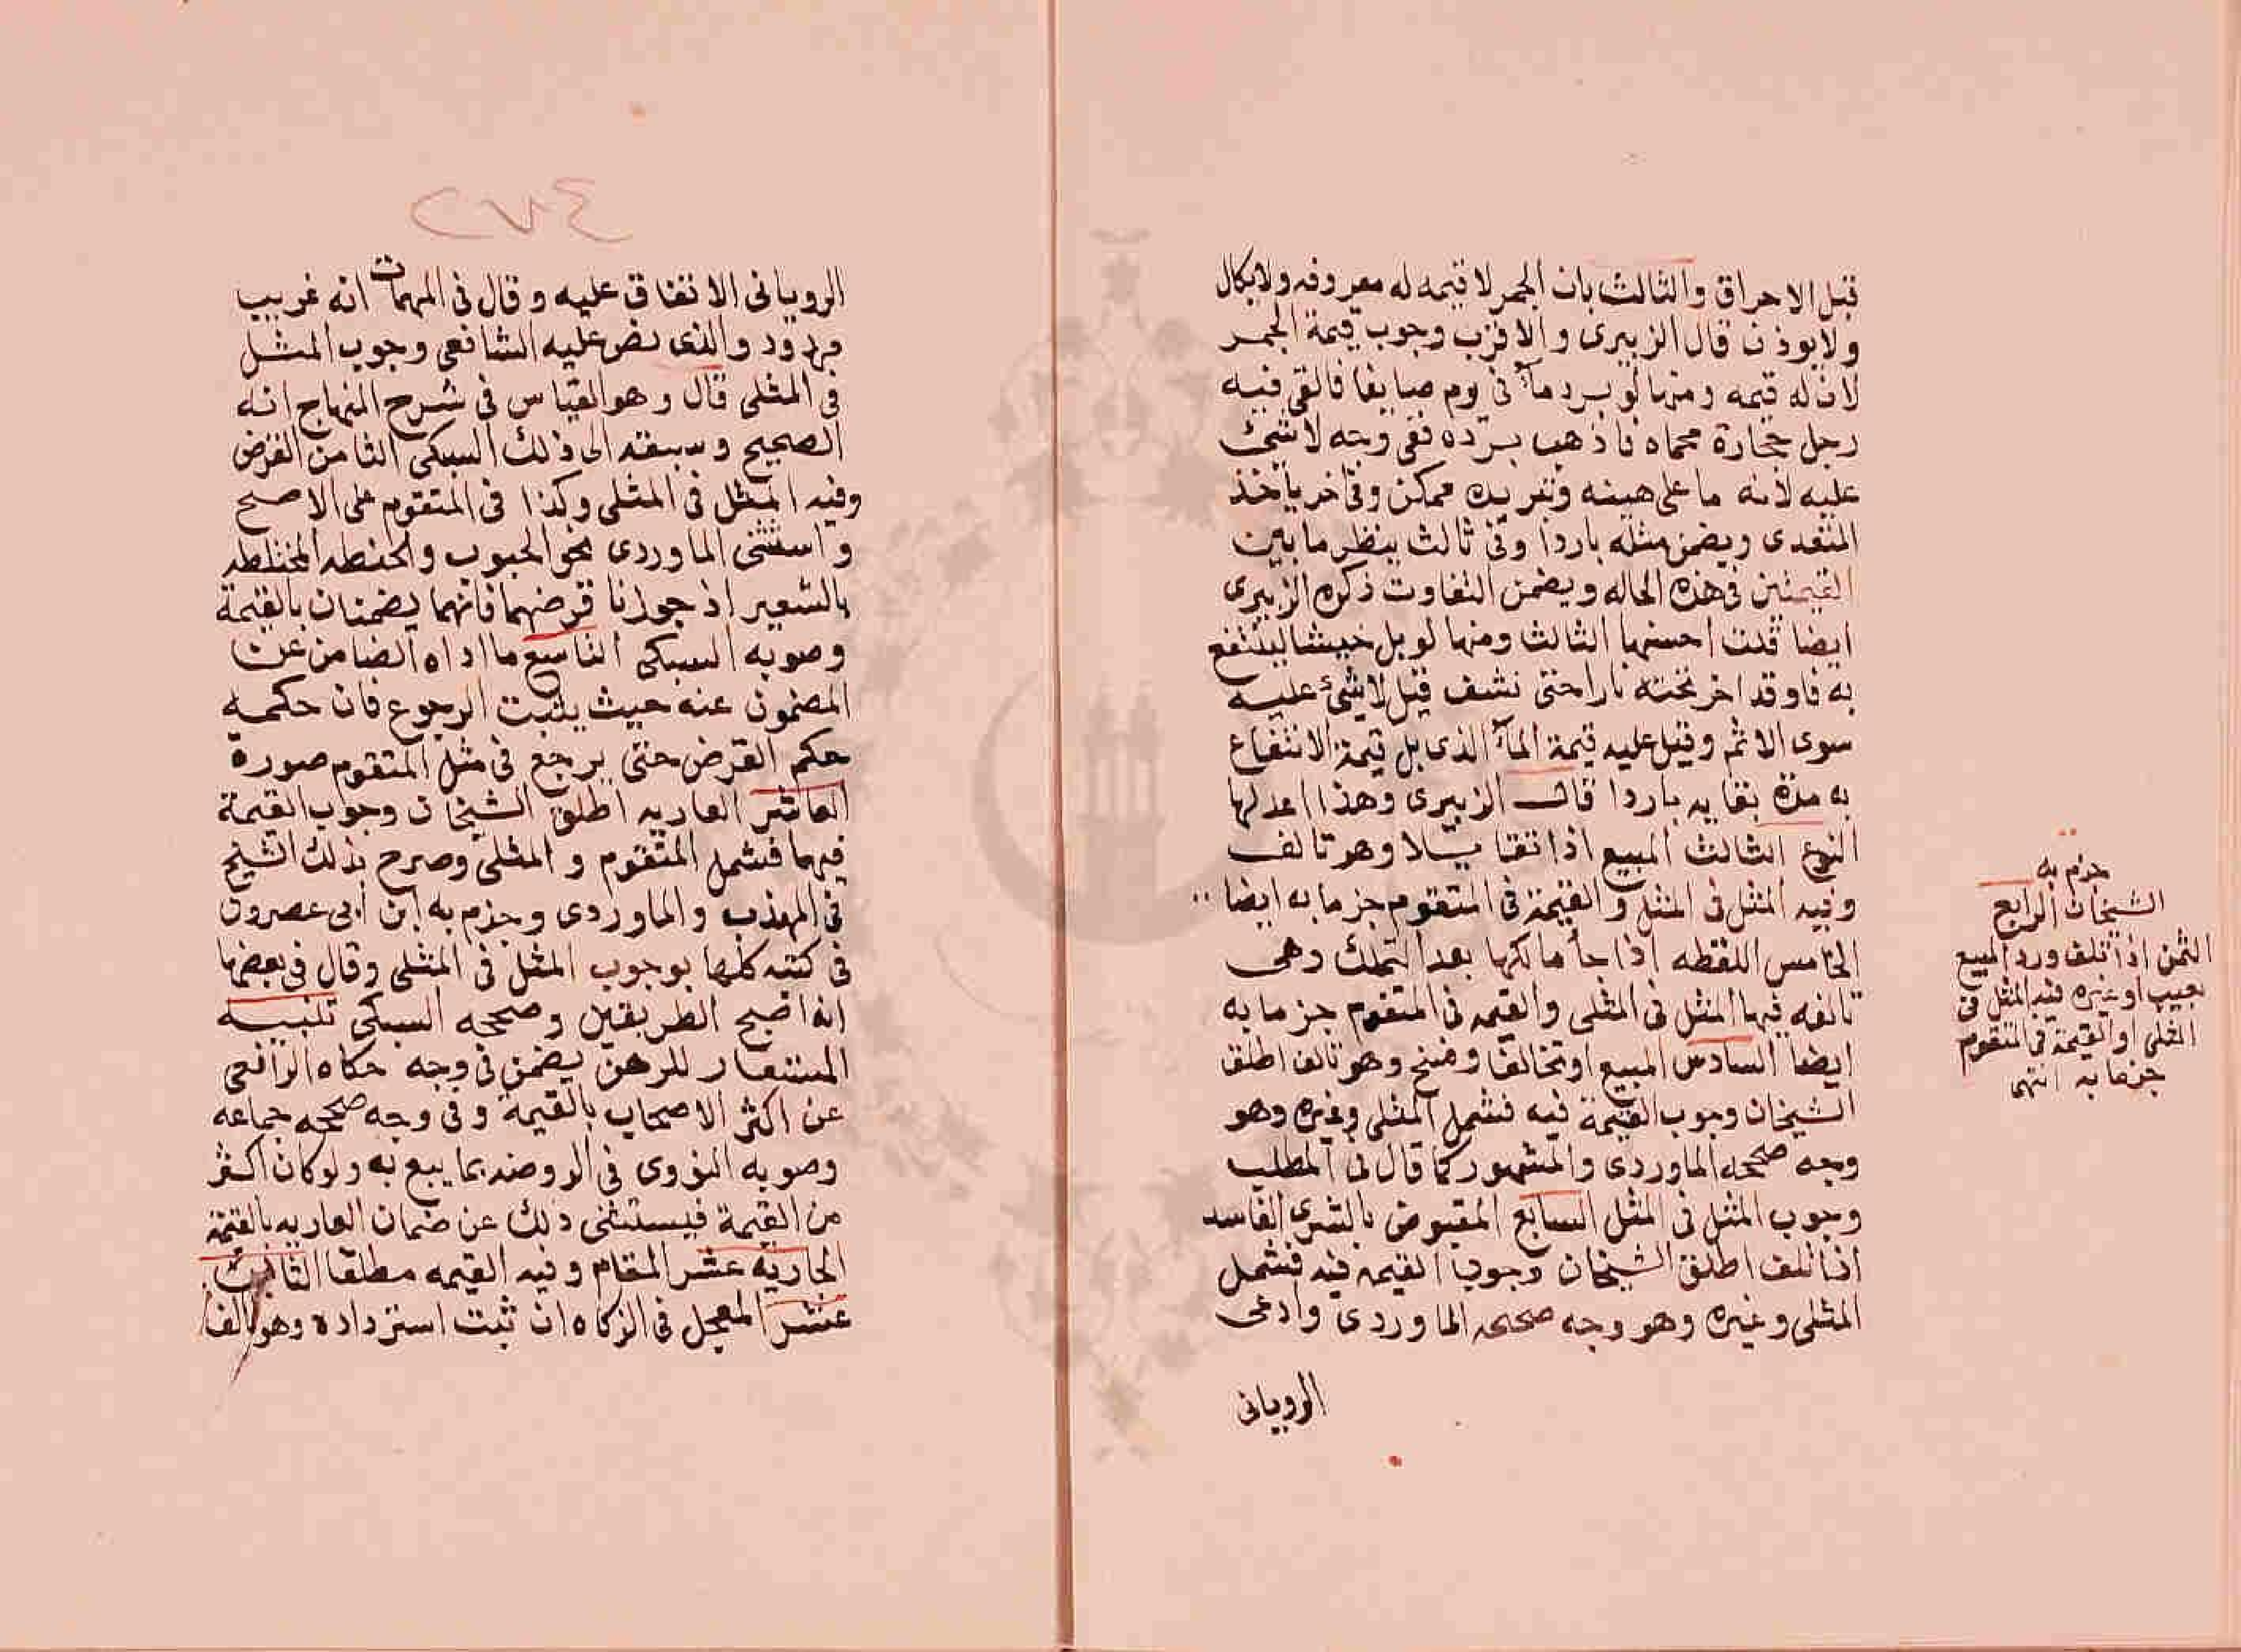 قبل الاحراق والثالث بان الجمر لا قيمه له معروفه ولا يكال
ولا يوزن قال الزبيرى والاقرب وجوب قيمة الجمر
لان له قيمه ومنها لو برد مآء فى يوم صايفا فالقى فيه
رجل حجارة محماه فاذهب برده ففى وجه لا شئ
عليه لانه ما على هيئته وتبريده ممكن وفى اخر ياخذ
المتعدى ويضمن مثله باردا وفى ثالث ينظر ما بين
القيمتين فى هذه الحاله ويضمن التفاوت ذكره الزبيرى
ايضا قلت احسنها الثالث ومنها لو بل خيشا لينتفع
به فاوقد اخر تحته نارا حتى نشف قيل لا شئ عليه
سوى الاثم وقيل عليه قيمة المآء الذى بل قيمة الانتفاع
به مدة بقايه باردا قال الزبيرى وهذا اعدلها
النوع الثالث المبيع اذا تقايلا وهو تالف
وفيه المثل فى المثل والقيمة فى المتقوم جزما به ايضا
الخامس اللقطه اذا جآ مالكها بعد التملك وهى
تالفه فيها المثل فى المثلى والقيمه فى المتقوم جزما به
ايضا السادس المبيع او تخالفا وفسخ وهو تالف اطلق
الشيخان وجوب القيمة فيه فشمل المثلى وغيره وهو
وجه صححه الماوردى والمشهور كما قال فى المطلب
وجوب المثل فى المثل السابع المقبوض بالشرى الفاسد
اذا تلف اطلق الشيخان وجوب القيمه فيه فشمل
المثلى وغيره وهو وجه صححه الماوردى وادعى
الرويانى
جزم به
الشيخان الرابع
الثمن اذا تلف ورد المبيع
بعيب او غيره فيه المثل فى
المثلى او القيمة فى المتقوم
جزما به انتهى
الرويانى الاتفاق عليه وقال فى المهمات انه غريب
مردود والذى نص عليه الشافعى وجوب المثل
فى المثلى قال وهو القياس فى شرح المنهاج انه
الصحيح وسبقه الى ذلك السبكى الثامن القرض
وفيه المثل فى المثلى وكذا فى المتقوم على الاصح
واستثنى الماوردى نحو الحبوب والحنطه المختلطه
بالشعير اذ جوزنا قرضهما فانهما يضمنان بالقيمة
وصوبه السبكى التاسع ما اداه الضامن عن
المضمون عنه حيث يثبت الرجوع فان حكمه
حكم القرض حتى يرجع فى مثل المتقوم صورة
العاشر العاريه اطلق الشيخان وجوب القيمة
فيها فشمل المتقوم والمثلى وصرح بذلك الشيخ
فى المهذب والماوردى وجزم به ابن أبى عصرون
فى كتبه كلها بوجوب المثل فى المثلى وقال فى بعضها
انه اصح الطريقين وصححه السبكى تنبيه
المستعار للرهن يضمن فى وجه حكاه الرافعى
عن اكثر الاصحاب بالقيمة وفى وجه صححه جماعه
وصوبه النووى فى الروضه بما بيع به ولو كان اكثر
من القيمة فيستثنى ذلك عن ضمان العاريه بالقيمة
الحاديه عشر المقام وفيه القيمه مطلقا الثانيت
عشر المعجل فى الزكاه ان ثبت استرداده وهو تالف